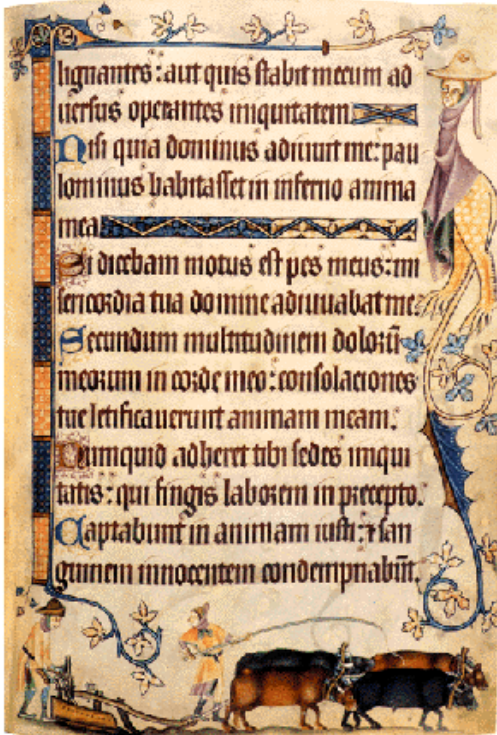 lignantes: aut quis stabit mecum ad
uersus operantes iniquitatem
Nisi quia dominus adiuuit me: pau
lominus habitasset in inferno anima
mea
Si dicebam motus est pes meus: mi
sericordia tua domine adiuuabat me
Secundum multitudinem dolorũ
meorum in corde meo: consolaciones
tue letificauerunt animam meam:
Numquid adheret tibi sedes iniqui
tatis: qui fingis laborem in precepto.
Captabunt in animam iusti: ⁊ san
guinem innocentem condempnabũt.